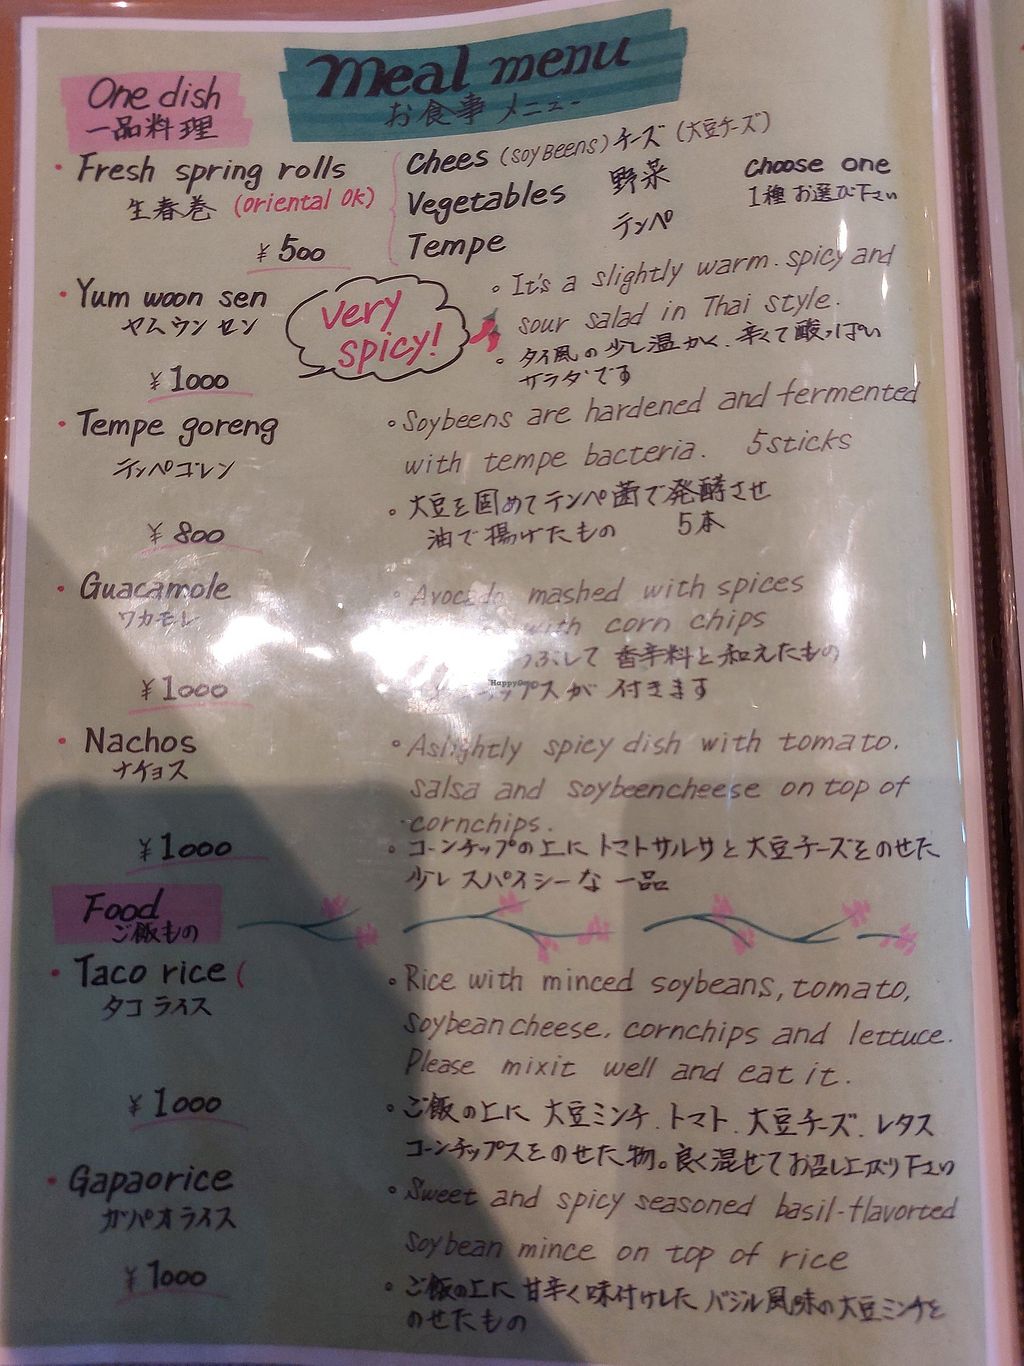 Meal menu
お食事メニュー
One dish
一品料理
・Fresh spring rolls
生春巻 (oriental OK)
¥500
Chees (SoyBeens) チーズ (大豆チーズ)
Vegetables 野菜
Tempe テンペ
Choose one
1種お選び下さい
・Yum woon sen
ヤムウンセン
¥1000
very
spicy!
・It's a slightly warm. spicy and
sour salad in Thai style.
・タイ風の少し温かく、辛くて酸っぱい
サラダです
・Tempe goreng
テンペゴレン
¥800
・Soybeens are hardened and fermented
with tempe bacteria. 5sticks
・大豆を固めてテンペ菌で発酵させ
油で揚げたもの 5本
・Guacamole
ワカモレ
¥1000
・Avocado mashed with spices
with corn chips
つぶして香辛料と和えたもの
チップスが付きます
HappyCow
・Nachos
ナチョス
¥1000
・Aslightly spicy dish with tomato.
salsa and soybeencheese on top of
cornchips.
・コーンチップの上にトマトサルサと大豆チーズをのせた
少しスパイシーな一品
Food
ご飯もの
・Taco rice (
タコライス
¥1000
・Rice with minced soybeans, tomato,
soybeancheese. cornchips and lettuce.
Please mixit well and eat it.
・ご飯の上に大豆ミンチ、トマト、大豆チーズ、レタス
コーンチップスをのせた物。良く混ぜてお召し上がり下さい
・Gapaorice
ガパオライス
¥1000
・Sweet and spicy seasoned basil-flavorted
soybean mince on top of rice
・ご飯の上に甘辛く味付けしたバジル風味の大豆ミンチを
のせたもの